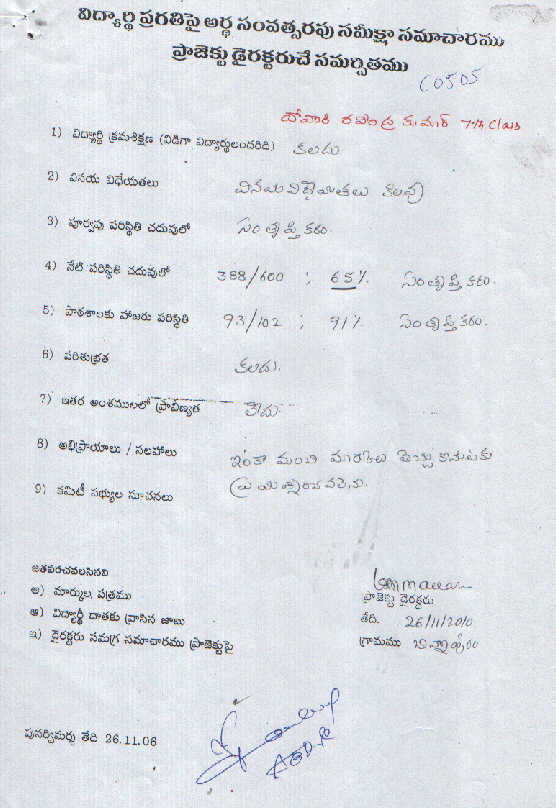 విద్యార్థి ప్రగతిపై అర్థ సంవత్సరపు సమీక్షా సమాచారము
ప్రాజెక్టు డైరక్టరుచే సమర్పితము
C0505
రవీంద్ర కుమార్ 7th Class
1) విద్యార్థి క్రమశిక్షణ (విడిగా విద్యార్థులందరిది) కలదు
2) వినయ విధేయతలు వినయ విధేయతలు కలవు
3) పూర్వపు పరిస్థితి చదువులో సంతృప్తికరం.
4) నేటి పరిస్థితి చదువులో 388/600 ; 65% సంతృప్తికరం.
5) పాఠశాలకు హాజరు పరిస్థితి 93/102 ; 91% సంతృప్తికరం.
6) పరిశుభ్రత కలదు.
7) ఇతర అంశములలో ప్రావీణ్యత లేదు
8) అభిప్రాయాలు / సలహాలు ఇంకా మంచి మార్కులు తెచ్చుకొనుటకు
ప్రయత్నించవలెను.
9) కమిటీ సభ్యుల సూచనలు
జతపరచవలసినవి
అ) మార్కుల పత్రము
ఆ) విద్యార్థి దాతకు వ్రాసిన జాబు
ఇ) డైరక్టరు సమగ్ర సమాచారము ప్రాజెక్టుపై
ప్రాజెక్టు డైరక్టరు
తేది. 26/11/2010
గ్రామము
పునర్విమర్శ తేది 26.11.06